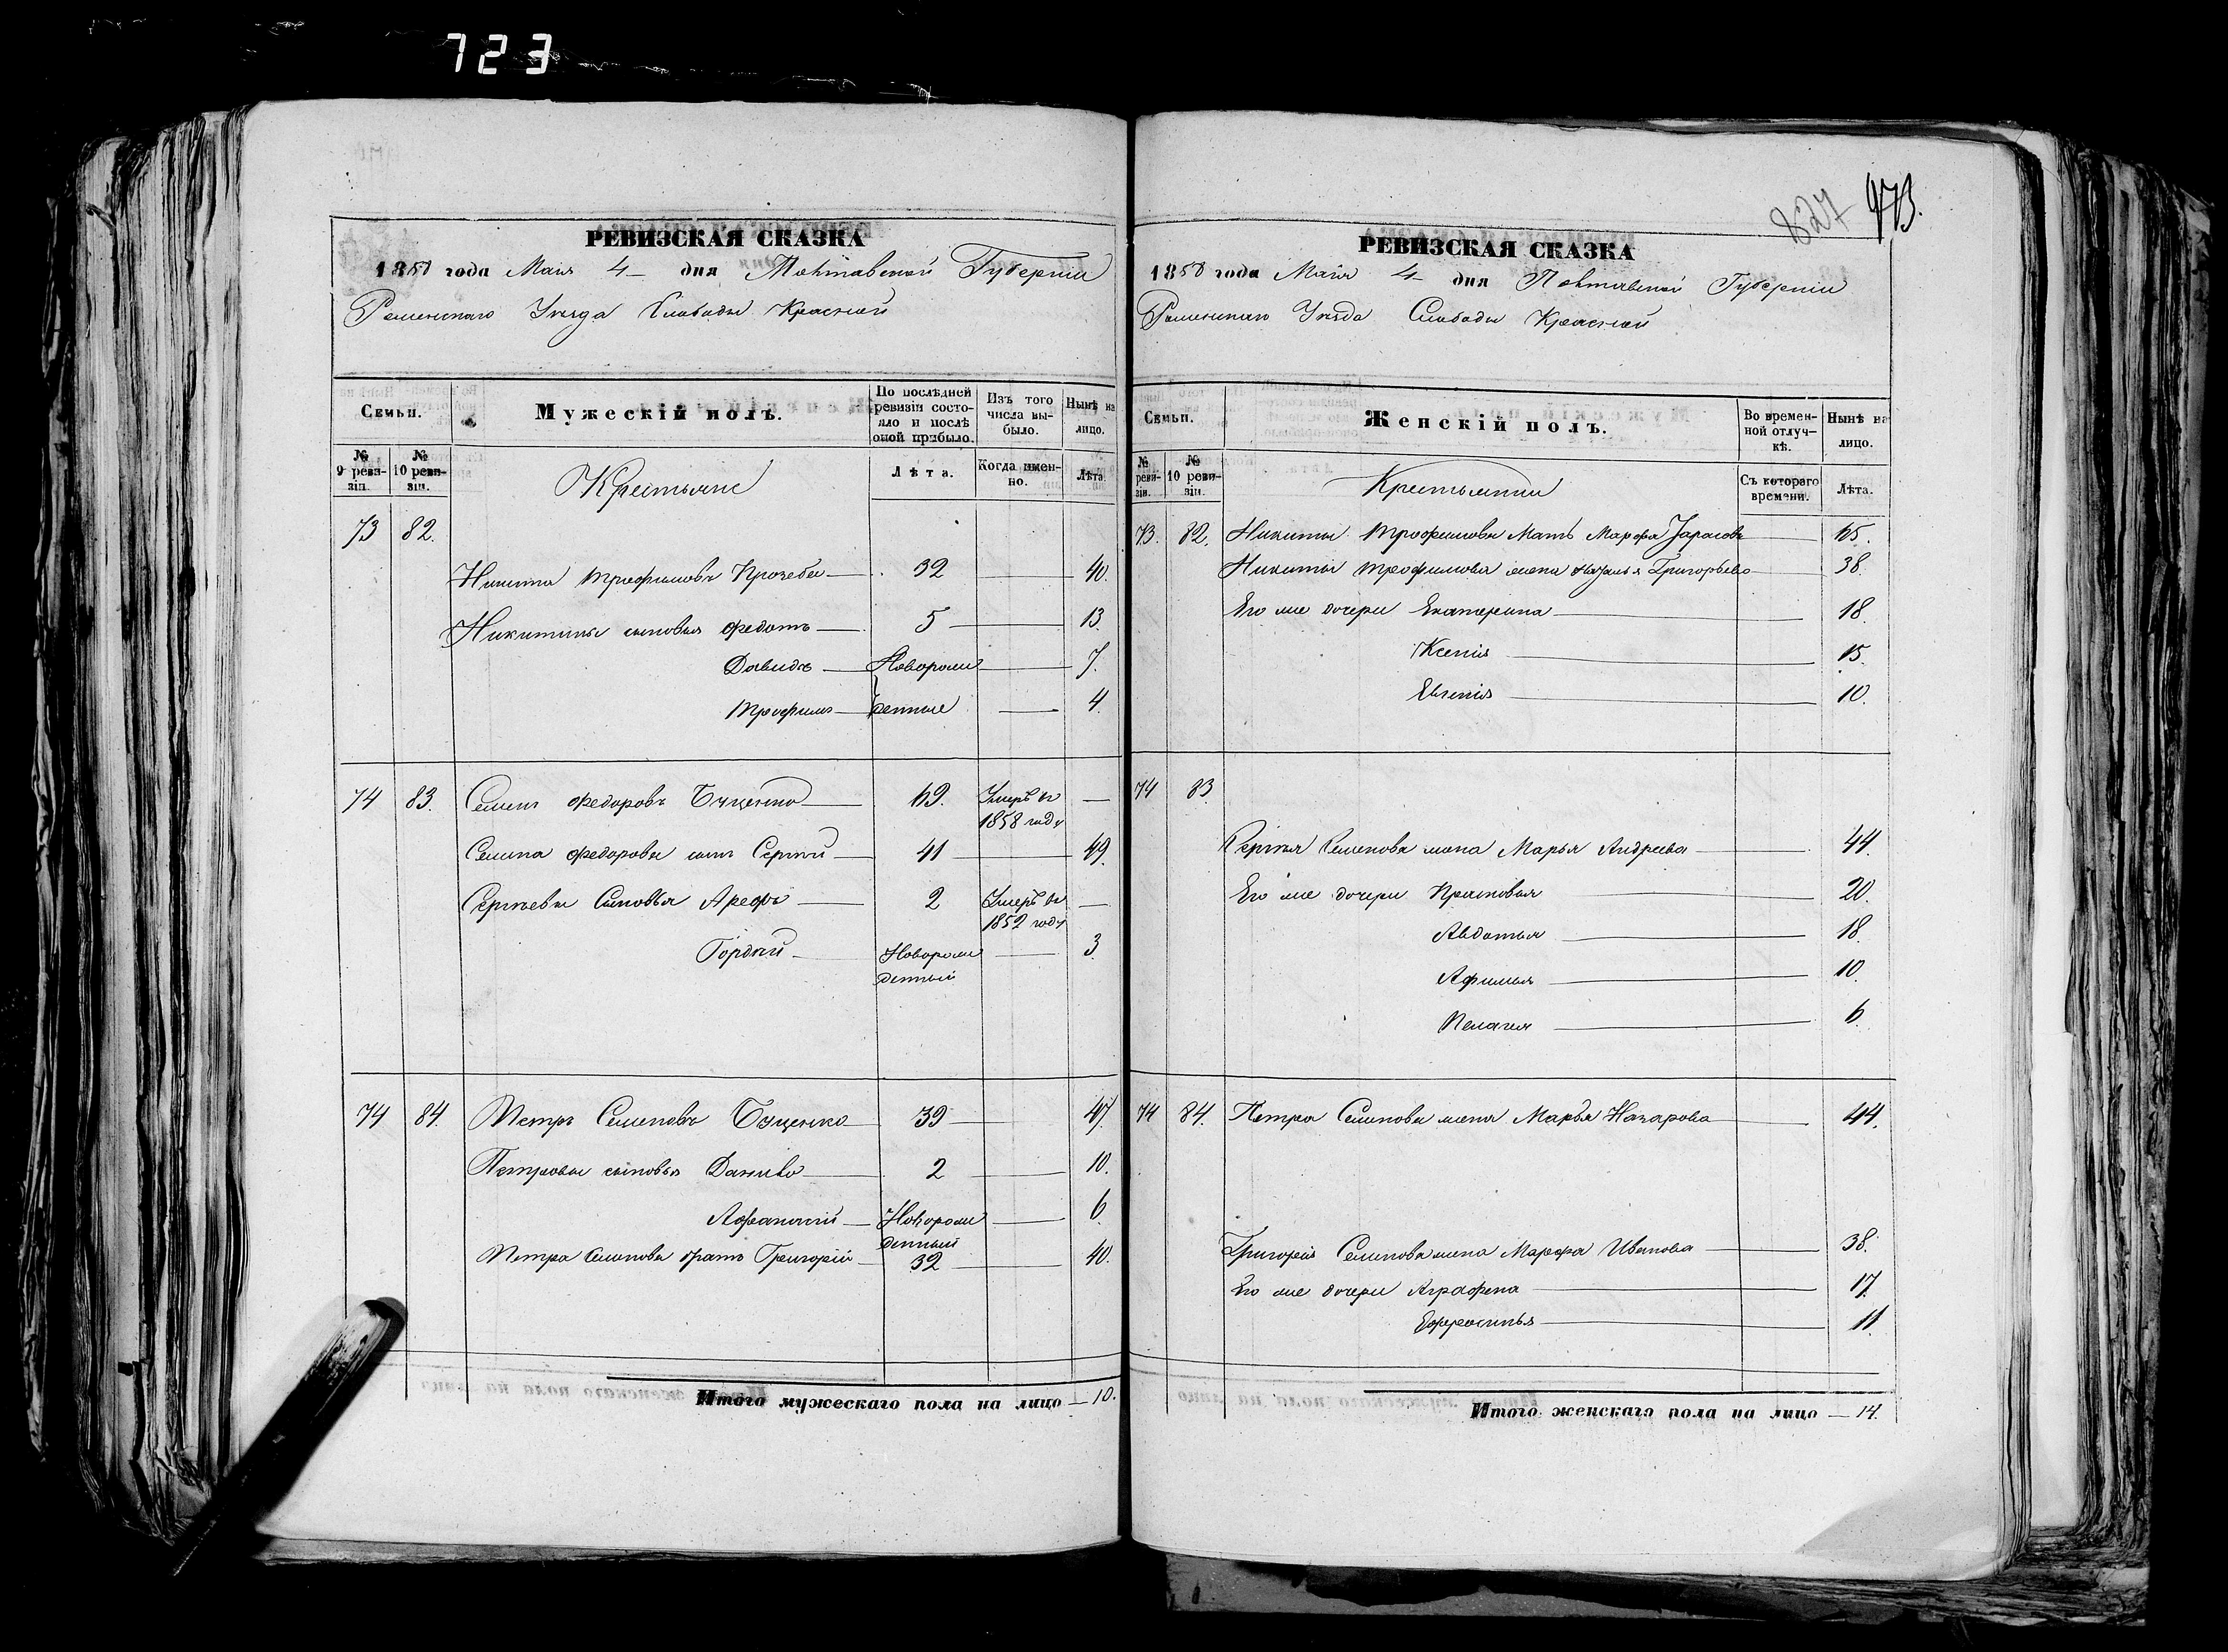 723
827 473.
РЕВИЗСКАЯ СКАЗКА
1858 года Мая 4 дня Полтавской Губернии
Роменскаго Уезда Слободы Красной
Семьи.
Мужескій полъ.
По послѣдней ревизіи состояло и послѣ оной прибыло.
Изъ того числа выбыло.
Нынѣ на лицо.
№ 9 ревизіи.
№ 10 ревизіи.
Крестьяне
Лѣта.
Когда именно.
Лѣта.
73 82.
Никита Трофимовъ 32 40.
Никитины сыновья Федотъ 5 13.
Давидъ Новорож 7.
Трофимъ денные 4.
74 83. Семенъ Федоровъ Буценко 69. Умеръ въ 1858 году —
Семена Федорова сынъ Сергѣй 41 49.
Сергѣевы Сыновья Арефъ 2 Умеръ въ 1852 году —
Гордѣй Новорож денный 3
74 84. Петръ Семеновъ Буценко 39 47.
Петровы сыновья Данило 2 10.
Афанасій Новорож денный 6.
Петра Семенова братъ Григорій 32 40.
Итого мужескаго пола на лицо — 10.
РЕВИЗСКАЯ СКАЗКА
1858 года Мая 4 дня Полтавской Губерніи
Роменскаго Уѣзда Слободы Красной
Семьи.
Женскій полъ.
Во временной отлучкѣ.
Нынѣ на лицо.
№ ревизіи.
№ 10 ревизіи.
Крестьянки
Съ котораго времени.
Лѣта.
73. 82. Никиты Трофимова Мать Марфа Тарасова 65.
Никиты Трофимова жена Наталья Григорьева 38.
Его же дочери Екатерина 18.
Ксенія 15.
Евгенія 10.
74 83
Сергѣя Семенова жена Марья Андреева 44.
Его же дочери Прасковья 20.
Авдотья 18.
Афимья 10.
Пелагея 6.
74 84. Петра Семенова жена Марья Назарова 44.
Григорія Семенова жена Марфа Иванова 38.
Его же дочери Аграфена 17.
Ефросинья 11.
Итого женскаго пола на лицо — 14.